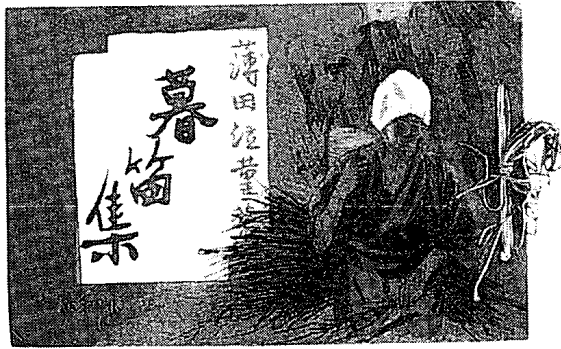 薄田泣菫著
暮笛集